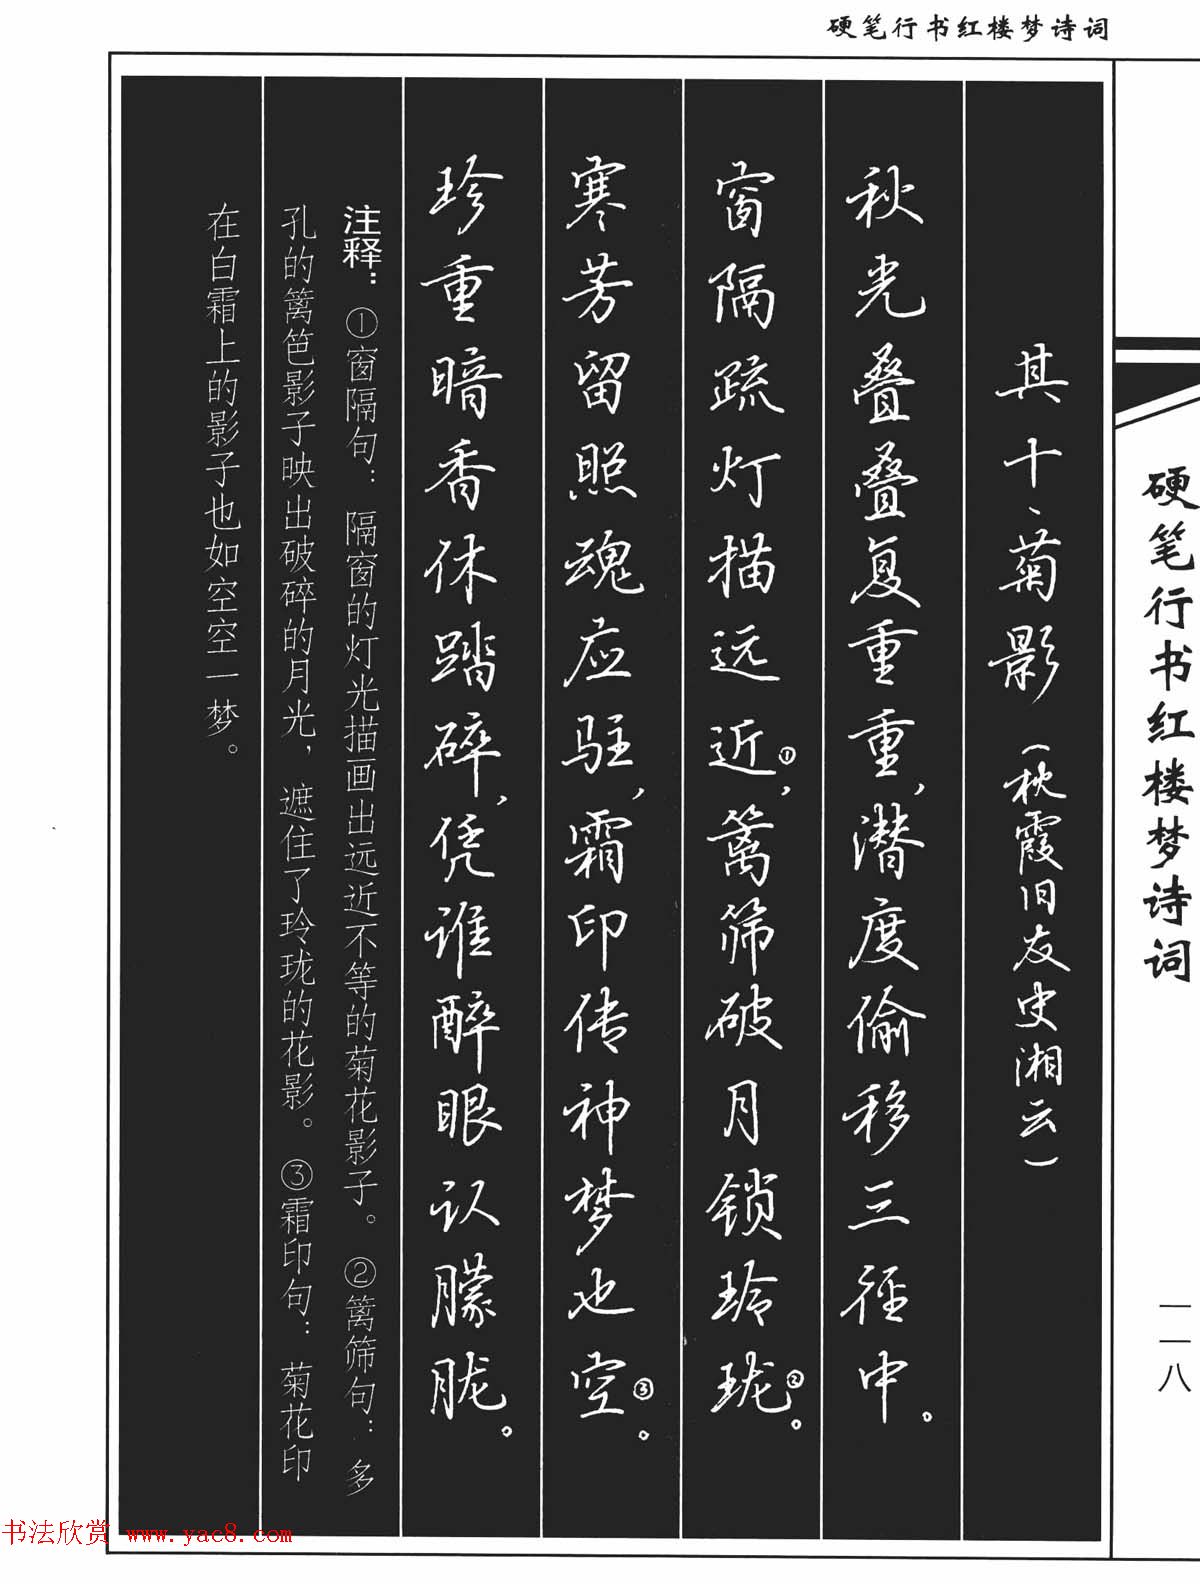 硬笔行书红楼梦诗词
其十、菊影（枕霞旧友史湘云）
秋光叠叠复重重，潜度偷移三径中。
窗隔疏灯描远近①，篱筛破月锁玲珑②。
寒芳留照魂应驻，霜印传神梦也空③。
珍重暗香休踏碎，凭谁醉眼认朦胧。
注释：①窗隔句：隔窗的灯光描画出远近不等的菊花影子。②篱筛句：多
孔的篱笆影子映出破碎的月光，遮住了玲珑的花影。③霜印句：菊花印
在白霜上的影子也如空空一梦。
硬笔行书红楼梦诗词
一一八
书法欣赏 www.yac8.com